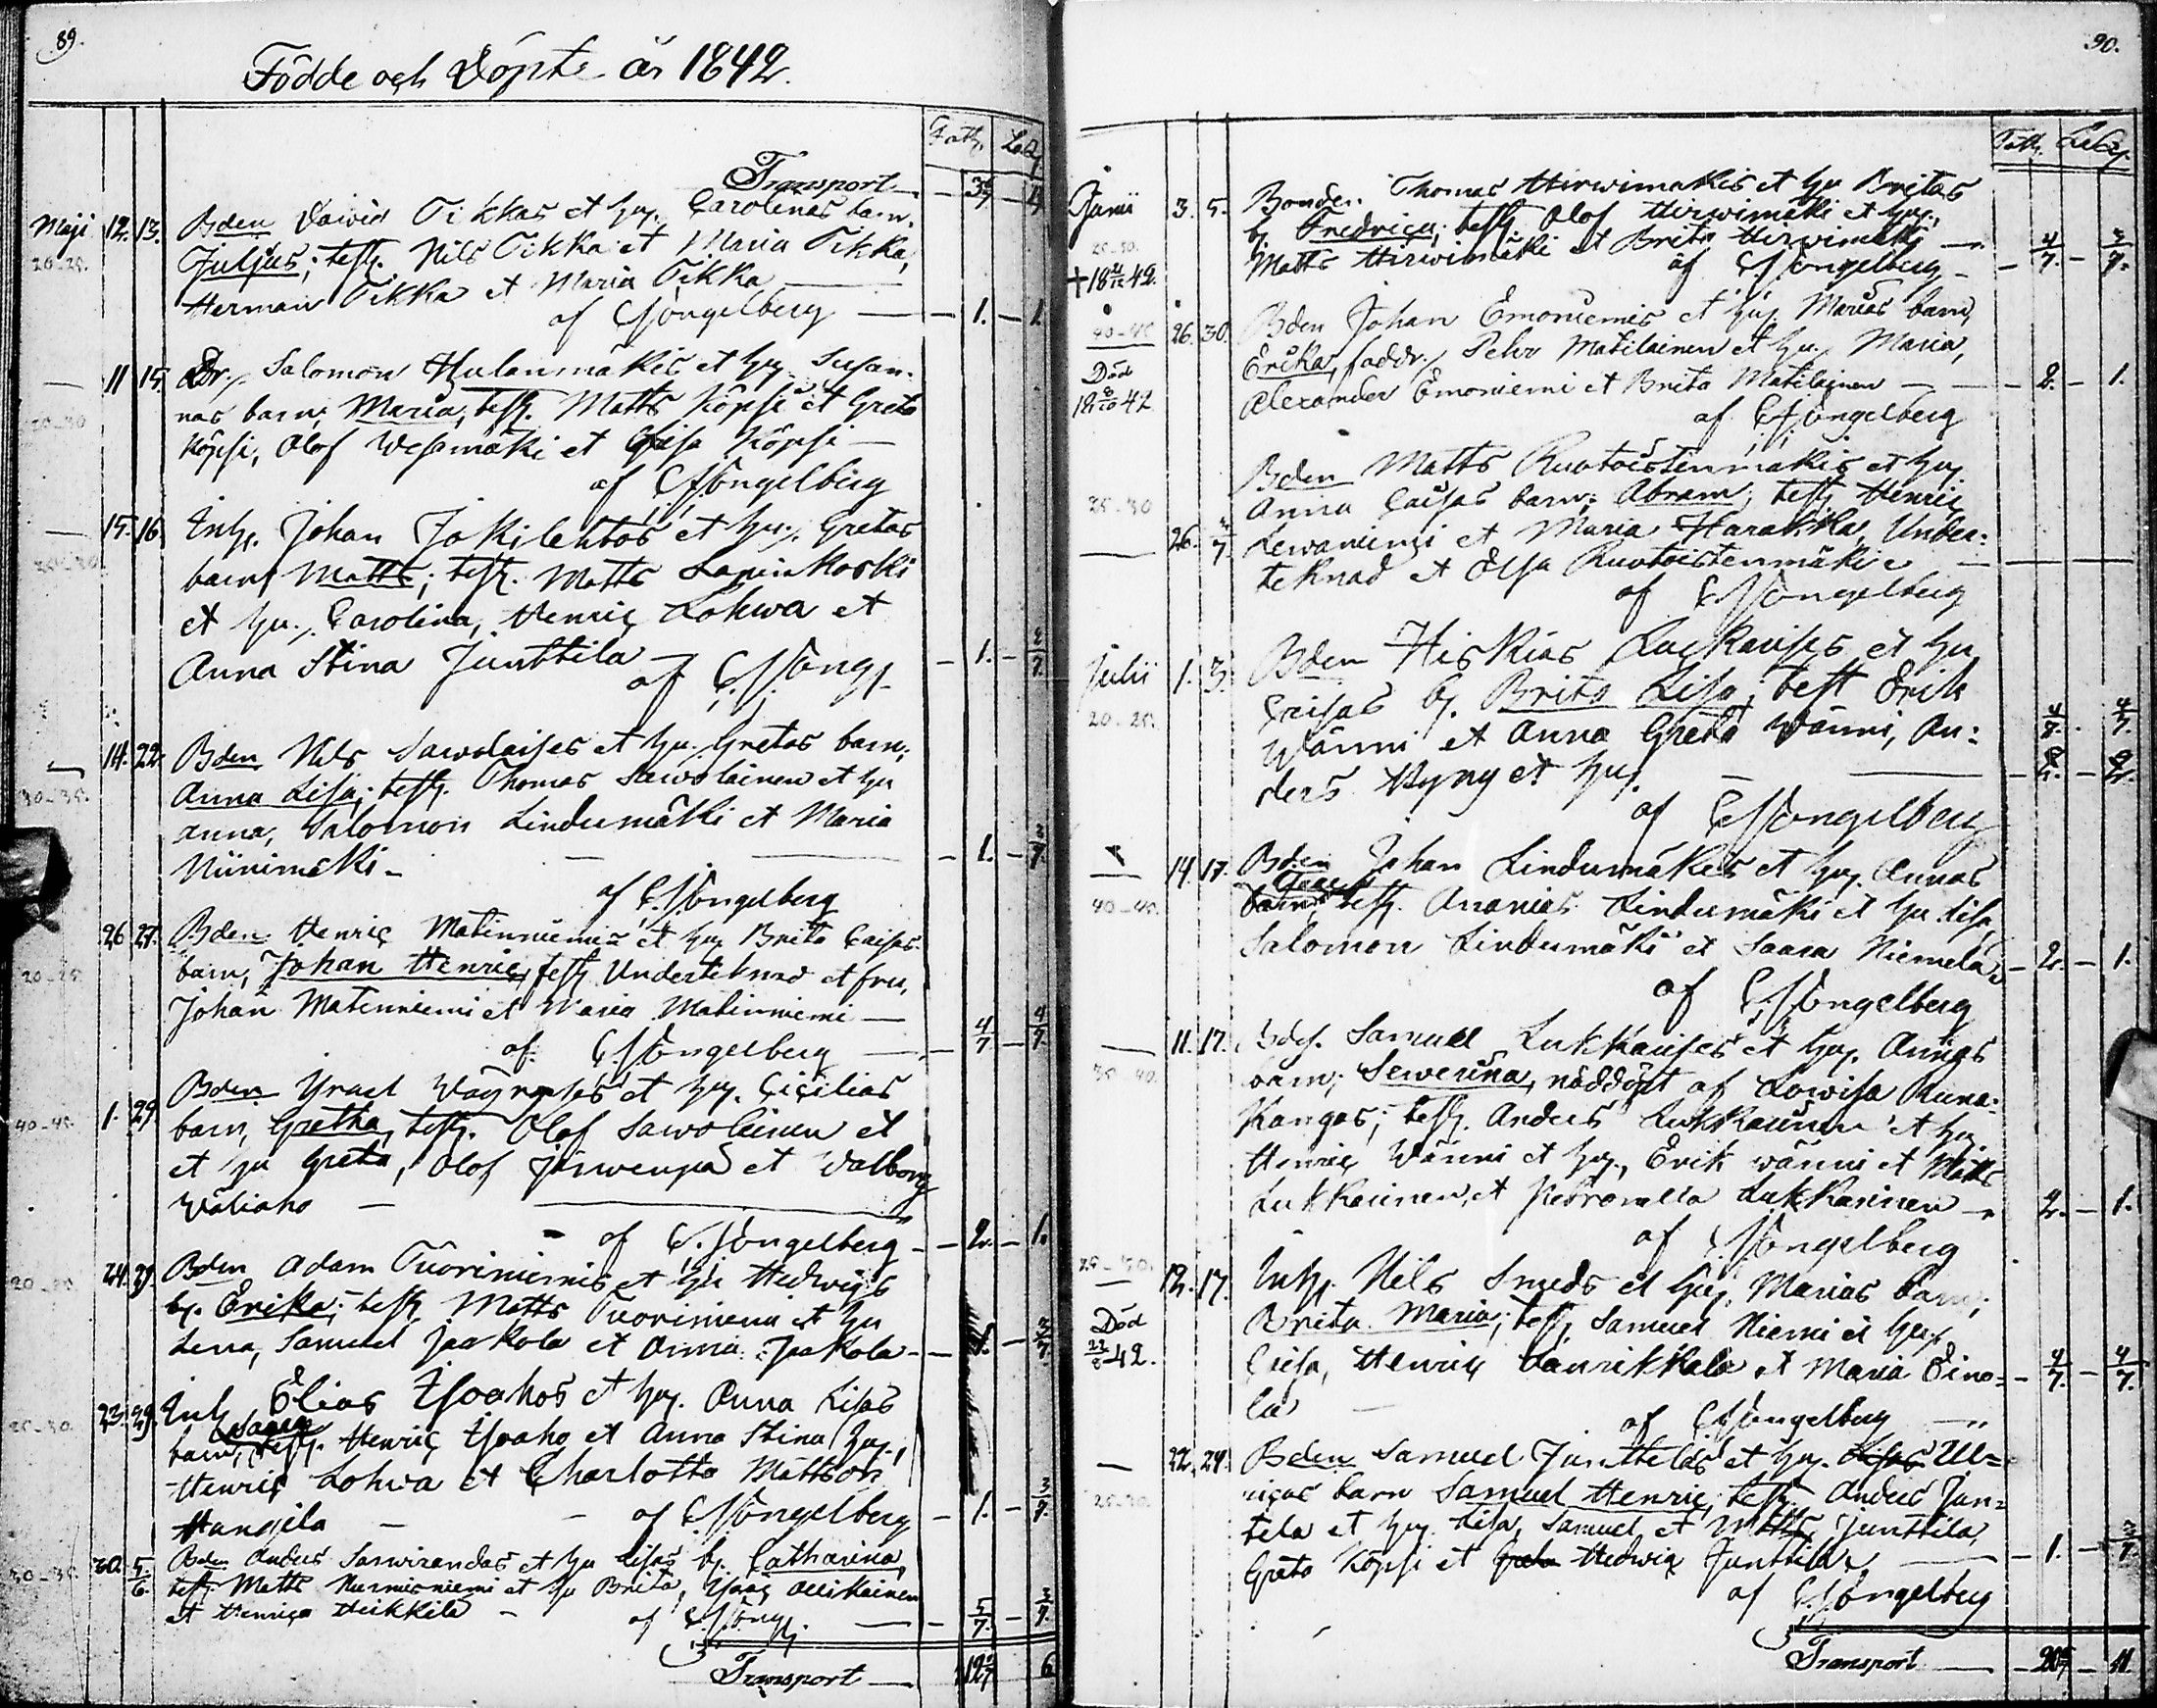 89.
Födde och Döpte år 1842.
Fatt.
Transport
Maji 12. 13. Bden David Tikkas et hu. Carolinas barn,
20-25. Juljus; test. Nils Tikka et Maria Tikka,
Herman Tikka et Maria Tikka
af CJ Jöngelberg — 1. — 1.
11 15. Dr. Salomon Hulanmäkis et hu. Susan-
20-30 nas barn, Maria, test. Matts Köpsi et Greta
Köpsi, Olof Wesamäki et Köpsi
af CJ Jöngelberg
15. 16. Inh. Johan Jokilehtos et hu. Gretas
barn Matts; test. Matts
et hu. Carolina, Henric Lohwa et
Anna Stina Junttila — 1. — 3/7.
af
14. 22. Bden Nils Sawolaises et hu. Gretas barn,
30-35. Anna Lisa; test. Thomas Sawolainen et hu
Anna, Salomon Lindumäki et Maria
Niinimäki — 1. — 3/7.
af CJ Jöngelberg
26 27. Bden Henric Matinniemis et hu. Brita Caisas
20-25. barn, Johan Henric, test. Underteknad et fru,
Johan Matinniemi et Maria Matinniemi
af CJ Jöngelberg — 4/7 — 4/7.
Bden Ysrael et hu. Cicilias
40-45. 1. 29 barn, Gretha, test. Olof Sawolainen et
et hu Greta, Olof Järwenpä et Walborg
Wäliaho
af CJ Jöngelberg — 2. — 1.
24. 29 Bden Adam Tuoriniemis et hu Hedwigs
b. Erika; test. Matts Tuoriniemi et hu
Lena, Samuel Jaakola et Anna Jaakola — 3/7.
23. 29 Inh Elias Ysoahos et hu. Anna Lisas
25-30. barn, Saara test. Henric Ysoaho et Anna Stina hu.,
Henric Lohwa et Charlotta Mattson
Hangila af CJ Jöngelberg — 1. — 3/7.
30. 5/6. Bden Anders Sarwirandas et hu Lisas b. Catharina,
30-35. test. Matts Nurmesniemi et hu Brita, Ysaac Ollikainen
et Henrica Heikkilä — af — 5/7. — 3/7.
Transport — 6
90.
Junii 3. 5. Bonden Thomas Hirwimäkis et hu Britas
25-30. b. Fredrica; test. Olof Hirwimäki et hu.,
Matts Hirwimäki et Brita Hirwimäki — 4/7. — 3/7.
af CJ Jöngelberg
26. 30. Bden Johan Emoniemis et hu. Marias barn,
Erika, faddr. Pehr Matilainen et hu. Maria,
Död Alexander Emoniemi et Brita Matilainen — 2. — 1.
18 8/10 42
af CJ Jöngelberg
Bden Matts Ruotoistenmäkis et hu.
25-30 Anna Caisas barn, Abram, test. Henric
26. 3/7 Lewaniemi et Maria Harakka, Under-
teknad et Elsa Ruotoistenmäki
af CJ Jöngelberg
Julii 1. 3. Bden Hiskias Luckarises et hu
20-25. Caisas b. Brita Lisa; test Erik
Wänni et Anna Greta Wänni, An-
ders et hu.
af CJ Jöngelberg
14. 17. Bden Johan Lindumäkis et hu. Annas
40-45. barn, test. Ananias Lindumäki et hu Lisa,
Salomon Lindumäki et Saara Niemelä — 2. — 1.
af CJ Jöngelberg
11. 17. Bdes. Samuel Lukkarises et hu. Annas
35-40. barn; Sewerina, nöddöpt af Lowisa
Kangas; test. Anders Lukkarinen et hu.
Henric Wänni et hu., Erik Wänni et Matts
Lukkarinen, et Petronella Lukkarinen — 2. — 1.
af CJ Jöngelberg
25-30. 12. 17. Inh. Nils Smeds et hu. Marias barn;
Död Brita Maria; test. Samuel Niemi et hu.
Caisa, Henric Laurikkala et Maria Eino- — 4/7. — 4/7.
la
af CJ Jöngelberg
22. 24. Bden Samuel Junttilas et hu. Lisas Ul-
25-30. ricas barn Samuel Henric, test. Anders Jun-
tila et hu. Lisa, Samuel et Matts Junttila,
Greta Köpsi et Greta Hedwig Junttila — 1. — 3/7.
af CJ Jöngelberg
Transport — 11.